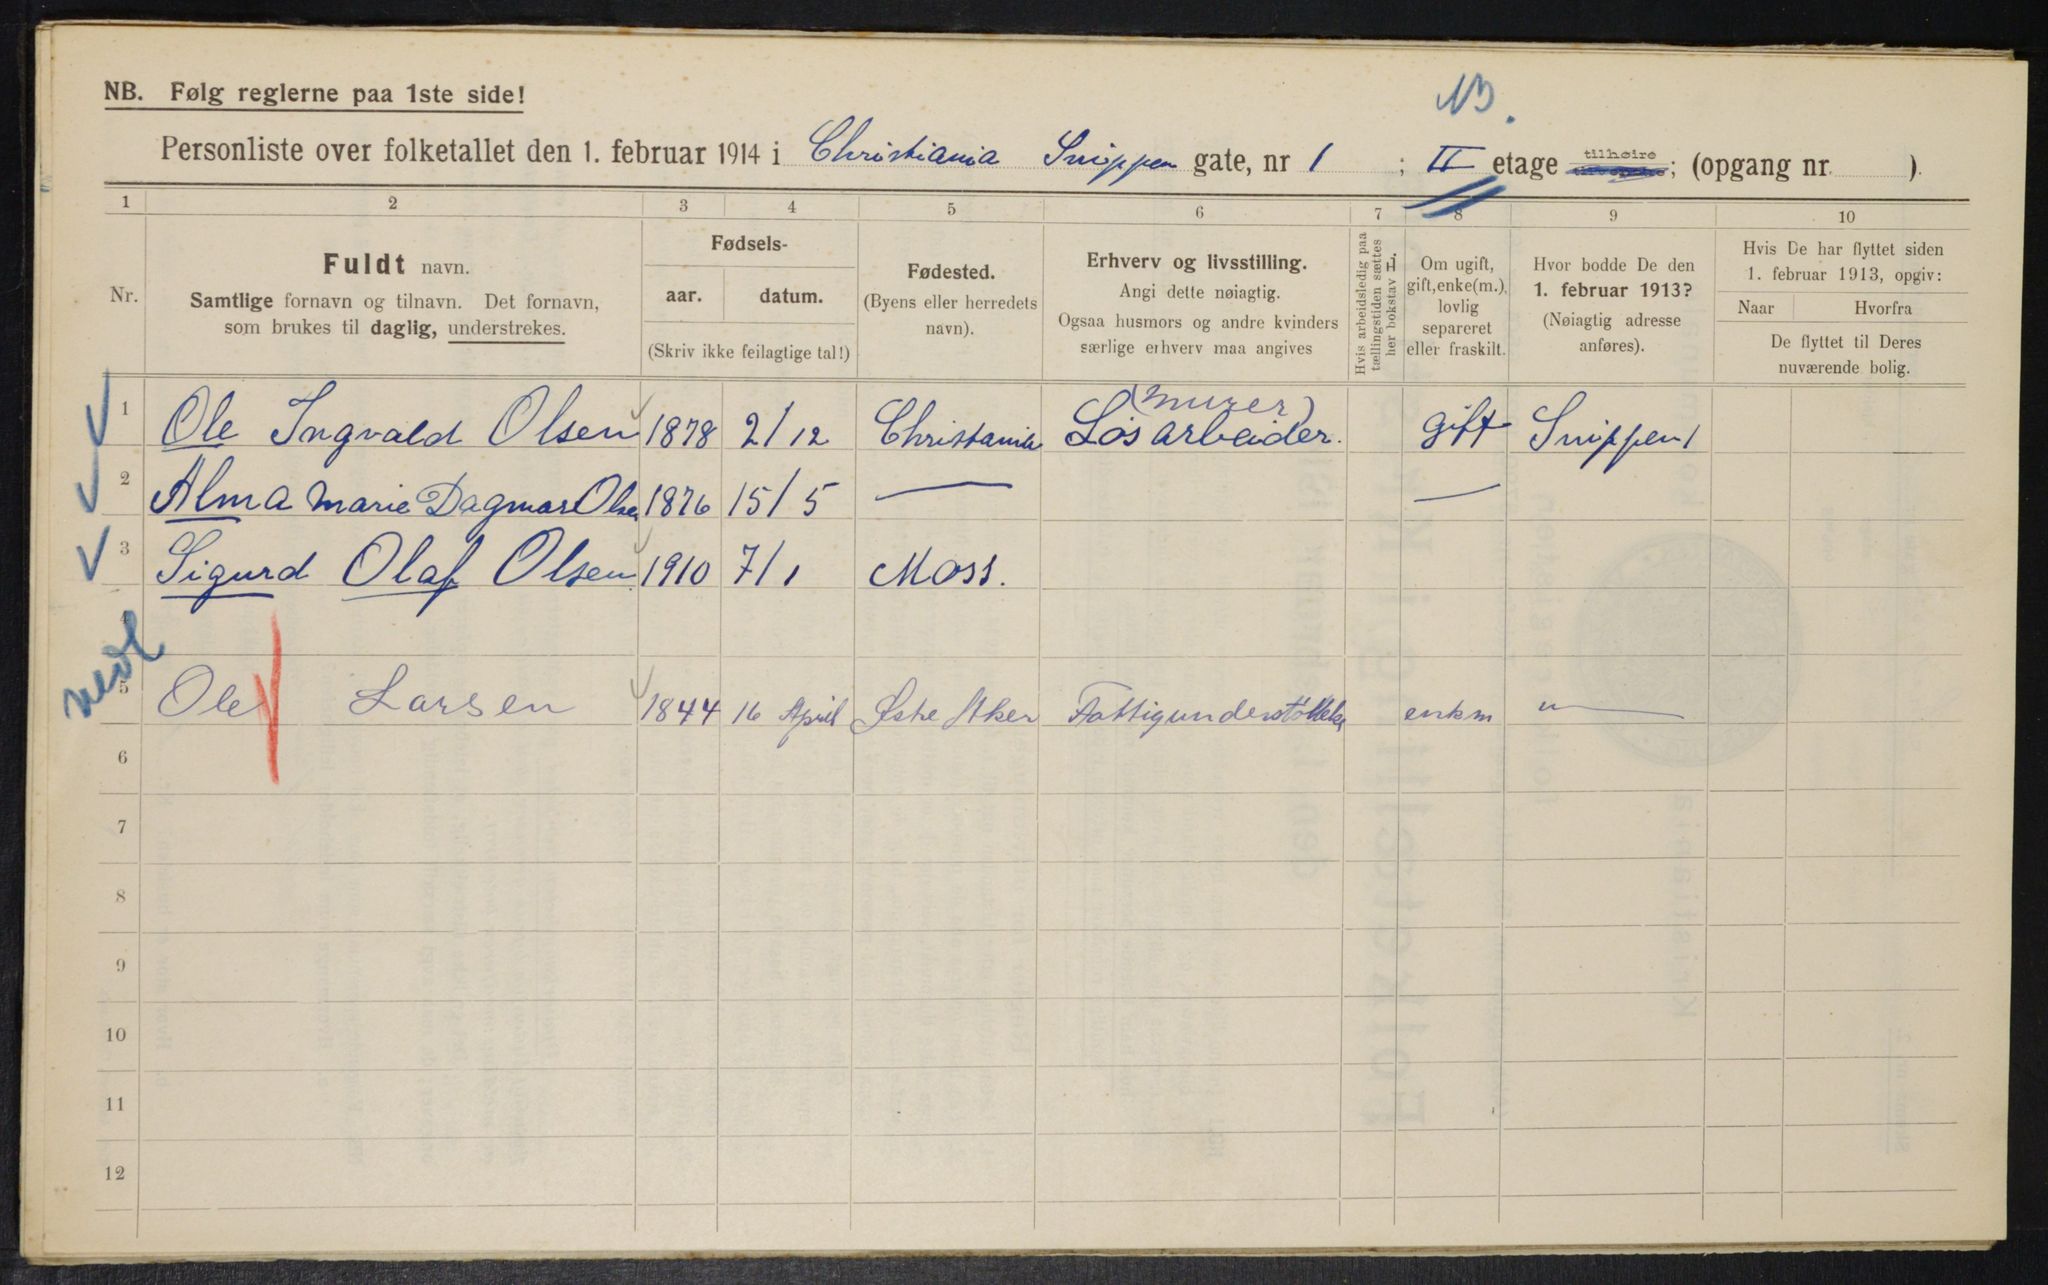 NB.
NB. Følg reglerne paa 1ste side!
Personliste over folketallet den 1. februar 1914 i Christiania Snippen gate, nr 1 ; II etage tilhøire; (opgang nr. ).
1 2 3 4 5 6 7 8 9 10
Nr.
Fuldt navn.
Samtlige fornavn og tilnavn. Det fornavn,
som brukes til daglig, understrekes.
Fødsels-
aar. datum.
(Skriv ikke feilagtige tal!)
Fødested.
(Byens eller herredets
navn).
Erhverv og livsstilling.
Angi dette nøiagtig.
Ogsaa husmors og andre kvinders
særlige erhverv maa angives
Hvis arbeidsledig paa
tællingstiden sættes
her bokstav L.
Om ugift,
gift, enke(m.),
lovlig
separeret
eller fraskilt.
Hvor bodde De den
1. februar 1913?
(Nøiagtig adresse
anføres).
Hvis De har flyttet siden
1. februar 1913, opgiv:
Naar Hvorfra
De flyttet til Deres
nuværende bolig.
1 Ole Ingvald Olsen 1878 2/12 Christania (murer) Løsarbeider. gift Snippen 1
2 Alma Marie Dagmar Olsen 1876 15/5 — —
3 Sigurd Olaf Olsen 1910 7/1 Moss.
4
5 Ole Larsen 1844 16 April Østre Aker Fattigunderstøttelse enkm " —
6
7
8
9
10
11
12